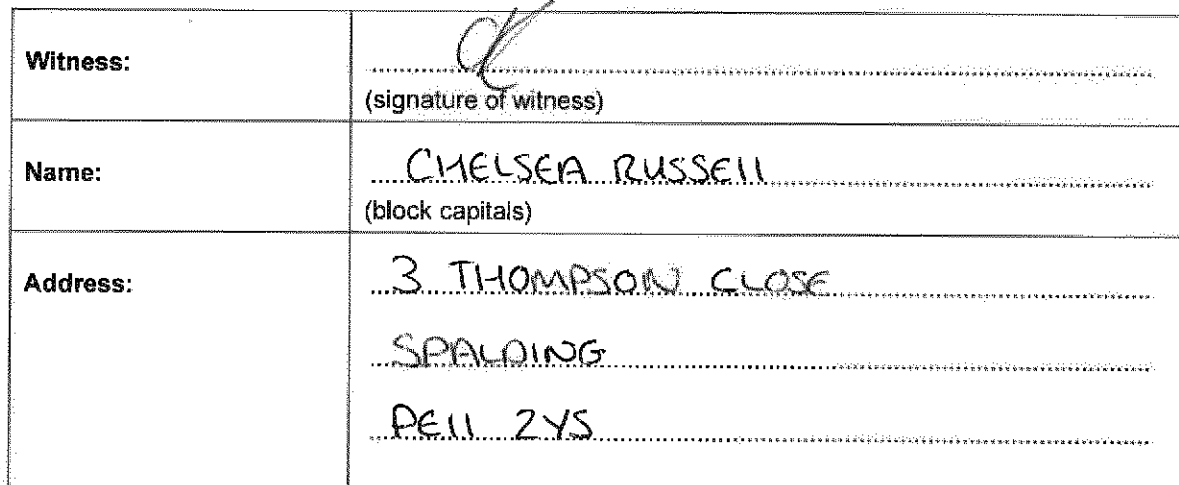 Witness:
(signature of witness)
Name:
CHELSEA RUSSELL
(block capitals)
Address:
3 THOMPSON CLOSE
SPALDING
PE11 2YS